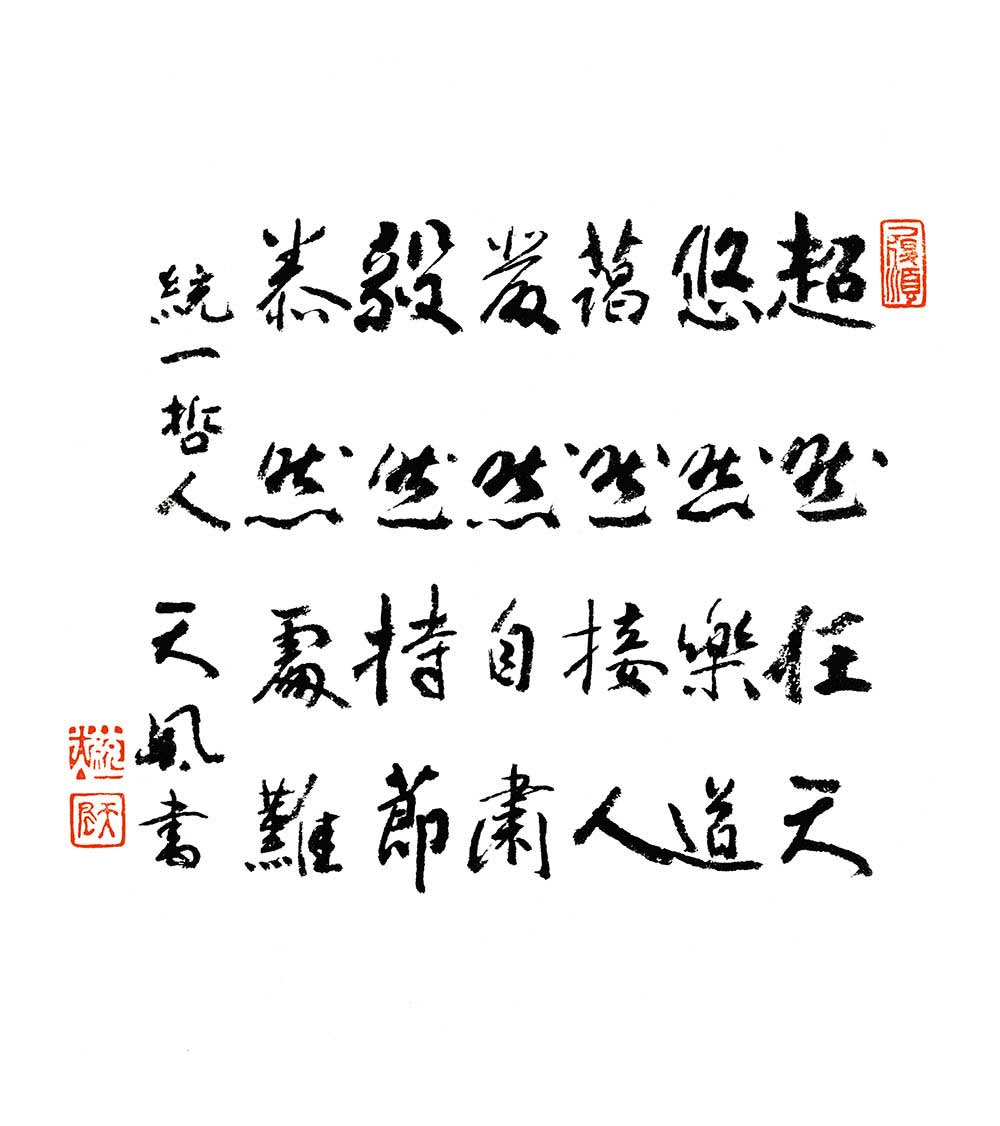 超然任天
悠然樂道
藹然接人
嚴然自肅
毅然持節
泰然處難
統一哲人 天風書